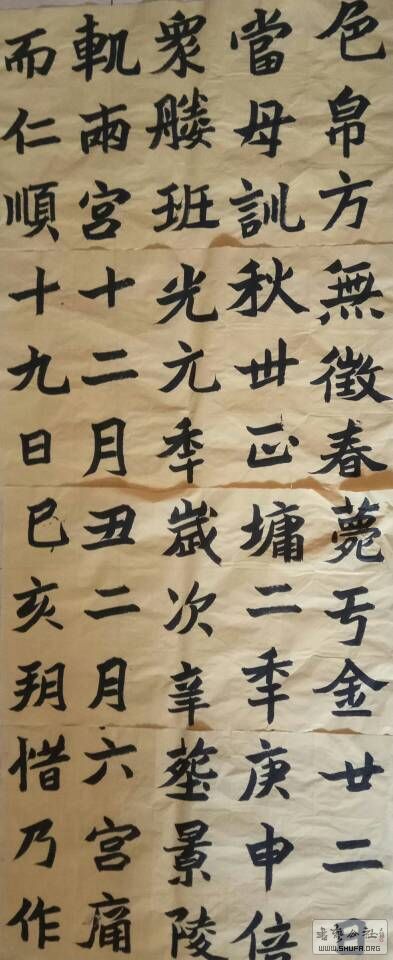 色帛方無徵春薨亏金廿二
當母訓秋丗正墉二秊庚申倍
衆媵班光元秊歲次辛塟景陵
軌兩宮十二月丑二月六宮痛
而仁順十九日巳亥玥惜乃作
书艺公社
WWW.SHUFA.ORG